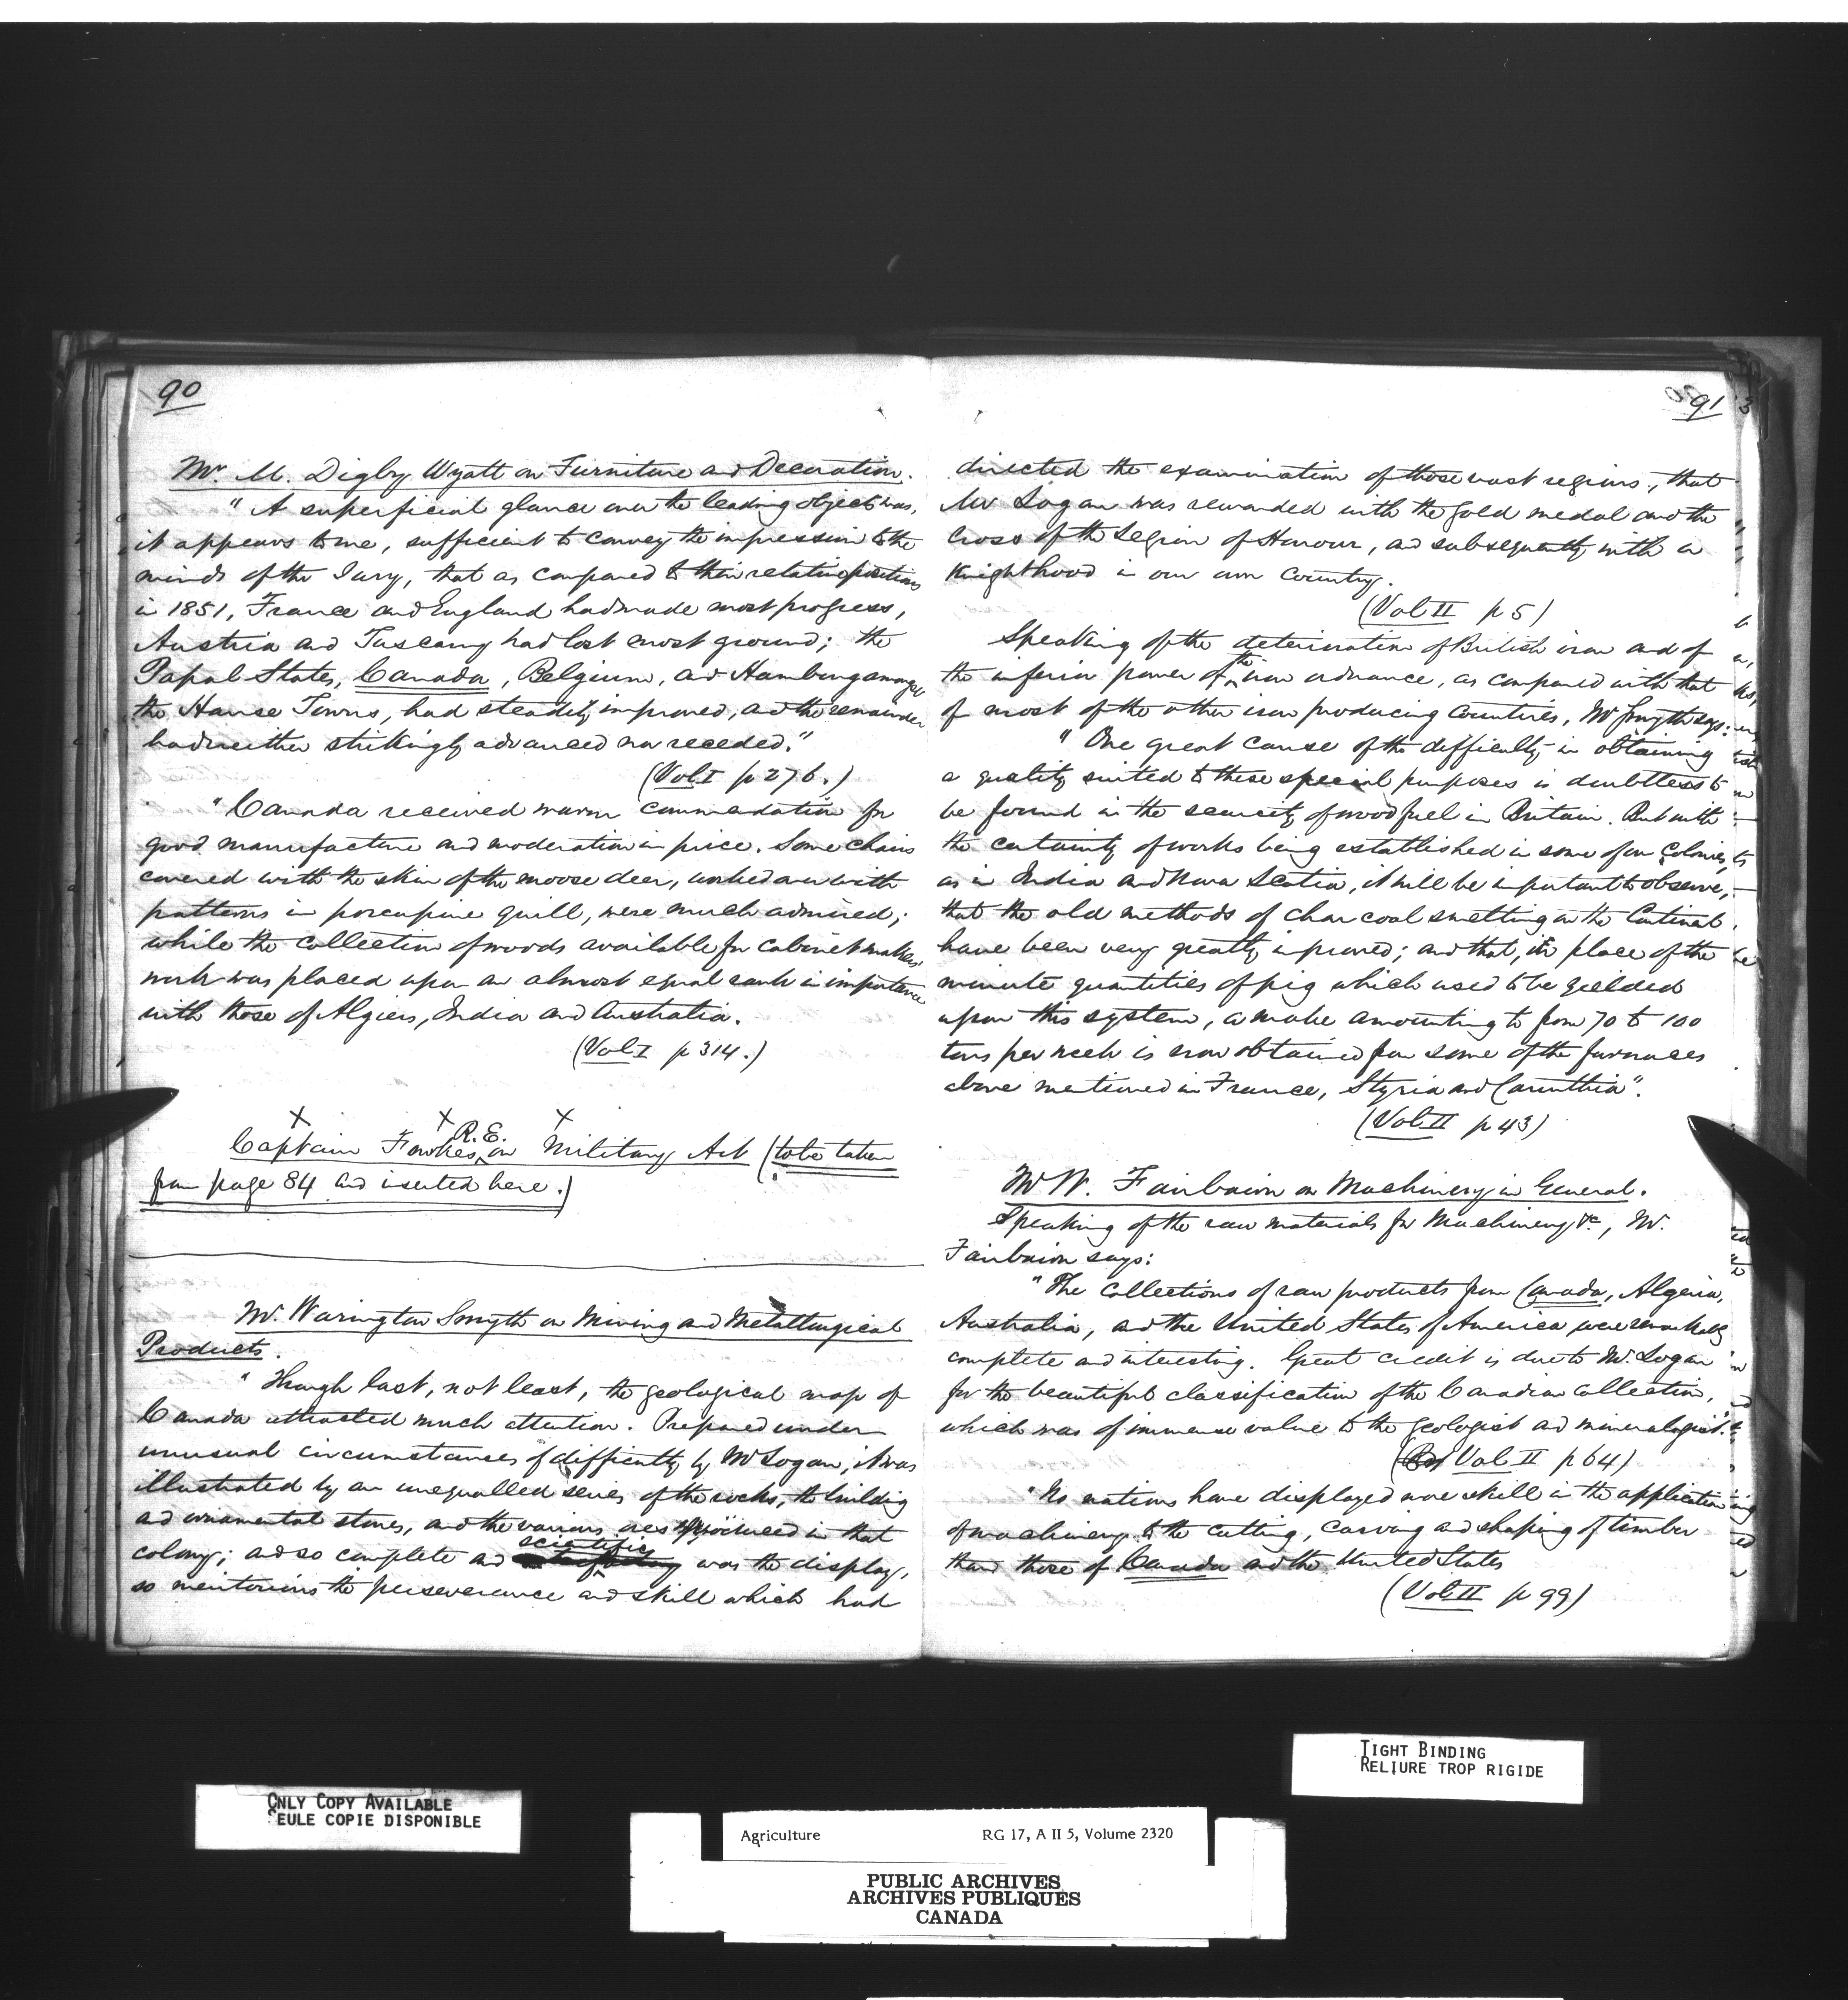 90
Mr. M. Digby Wyatt on Furniture and Decoration.
"A superficial glance over the leading objects was,
it appears to me, sufficient to convey the impression to the
minds of the Jury, that as compared to their relative positions
in 1851, France and England had made most progress,
Austria and Tuscany had lost most ground; the
Papal States, Canada, Belgium, and Hamburg amongst
the Hanse Towns, had steadily improved, and the remainder
had neither strikingly advanced nor receded."
(Vol I p 276.)
"Canada received warm commendation for
good manufacture and moderation in price. Some chairs
covered with the skin of the moose deer, worked over with
patterns in porcupine quill, were much admired;
while the collection of woods available for cabinet makers'
work was placed upon an almost equal rank in importance
with those of Algiers, India and Australia.
(Vol I p 314.)
X X X
Captain Fowkes, R.E. on Military Art (to be taken
from page 84 and inserted here.)
Mr. Warington Smyth on Mining and Metallurgical
Products.
"Though last, not least, the geological map of
Canada attracted much attention. Prepared under
unusual circumstances of difficulty by Mr Logan, it was
illustrated by an unequalled series of the rocks, the building
and ornamental stones, and the various ores produced in that
colony; and so complete and scientific was the display,
so meritorious the perseverance and skill which had
91
directed the examination of those vast regions, that
Mr Logan was rewarded with the gold medal and the
Cross of the Legion of Honour, and subsequently with a
Knighthood in our own Country.
(Vol II p 5)
Speaking of the deterioration of British iron and of
the inferior power of the iron ordnance, as compared with that
of most of the other iron producing Countries, Mr Smyth says:
"One great cause of the difficulty in obtaining
a quality suited to these special purposes is doubtless to
be found in the scarcity of wood fuel in Britain. But with
the certainty of works being established in some of our Colonies,
as in India and Nova Scotia, it will be important to observe,
that the old methods of charcoal smelting on the Continent
have been very greatly improved; and that, in place of the
minute quantities of pig which used to be yielded
upon this system, a make amounting to from 70 to 100
tons per week is now obtained from some of the furnaces
above mentioned in France, Styria and Carinthia".
(Vol II p 43)
Mr W. Fairbairn on Machinery in General.
Speaking of the raw materials for Machinery &c, Mr.
Fairbairn says:
"The Collections of raw products from Canada, Algeria,
Australia, and the United States of America were remarkably
complete and interesting. Great credit is due to Mr. Logan
for the beautiful classification of the Canadian Collection,
which was of immense value to the geologist and mineralogist."
(Vol II p 64)
"No nations have displayed more skill in the application
of machinery to the cutting, carving and shaping of timber
than those of Canada and the United States
(Vol II p 99)
TIGHT BINDING
RELIURE TROP RIGIDE
ONLY COPY AVAILABLE
SEULE COPIE DISPONIBLE
Agriculture RG 17, A II 5, Volume 2320
PUBLIC ARCHIVES
ARCHIVES PUBLIQUES
CANADA